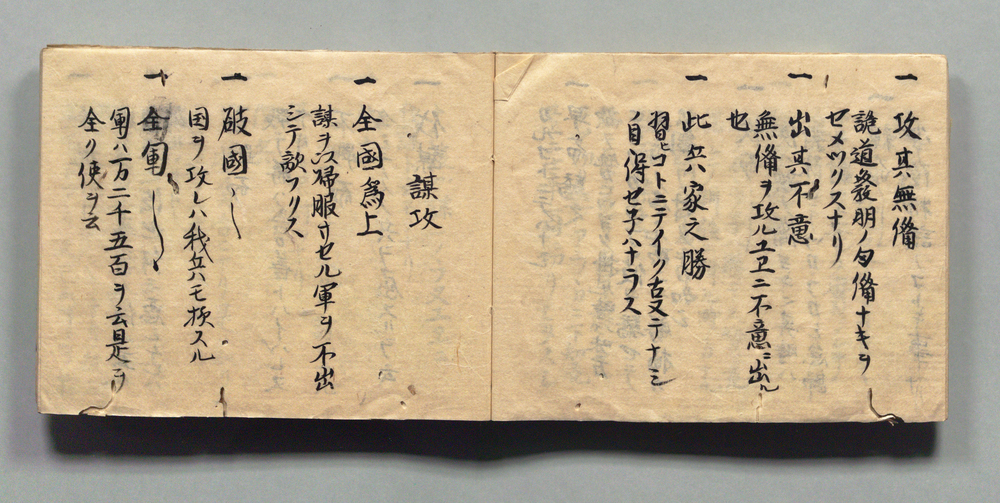 一 攻其無備
詭道發明ノ句備ナキヲ
セメツリスナリ
一 出其不意
無備ヲ攻ルユヱニ不意ニ出ル
也
一 此兵家之勝
習ヒコトニテイクサステナシ
自得セ子ハナラス
謀攻
一 全國爲上
謀ヲ以帰服サセル軍ヲ不出
シテ敵フリス
一 破國〻
国ヲ攻レハ我兵ハモ損スル
一 全軍〻
軍ハ万二千五百ヲ云是ヲ
全リ使ヲ云